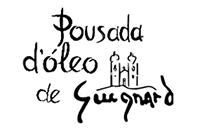 Pousada
d'óleo
de Guignard